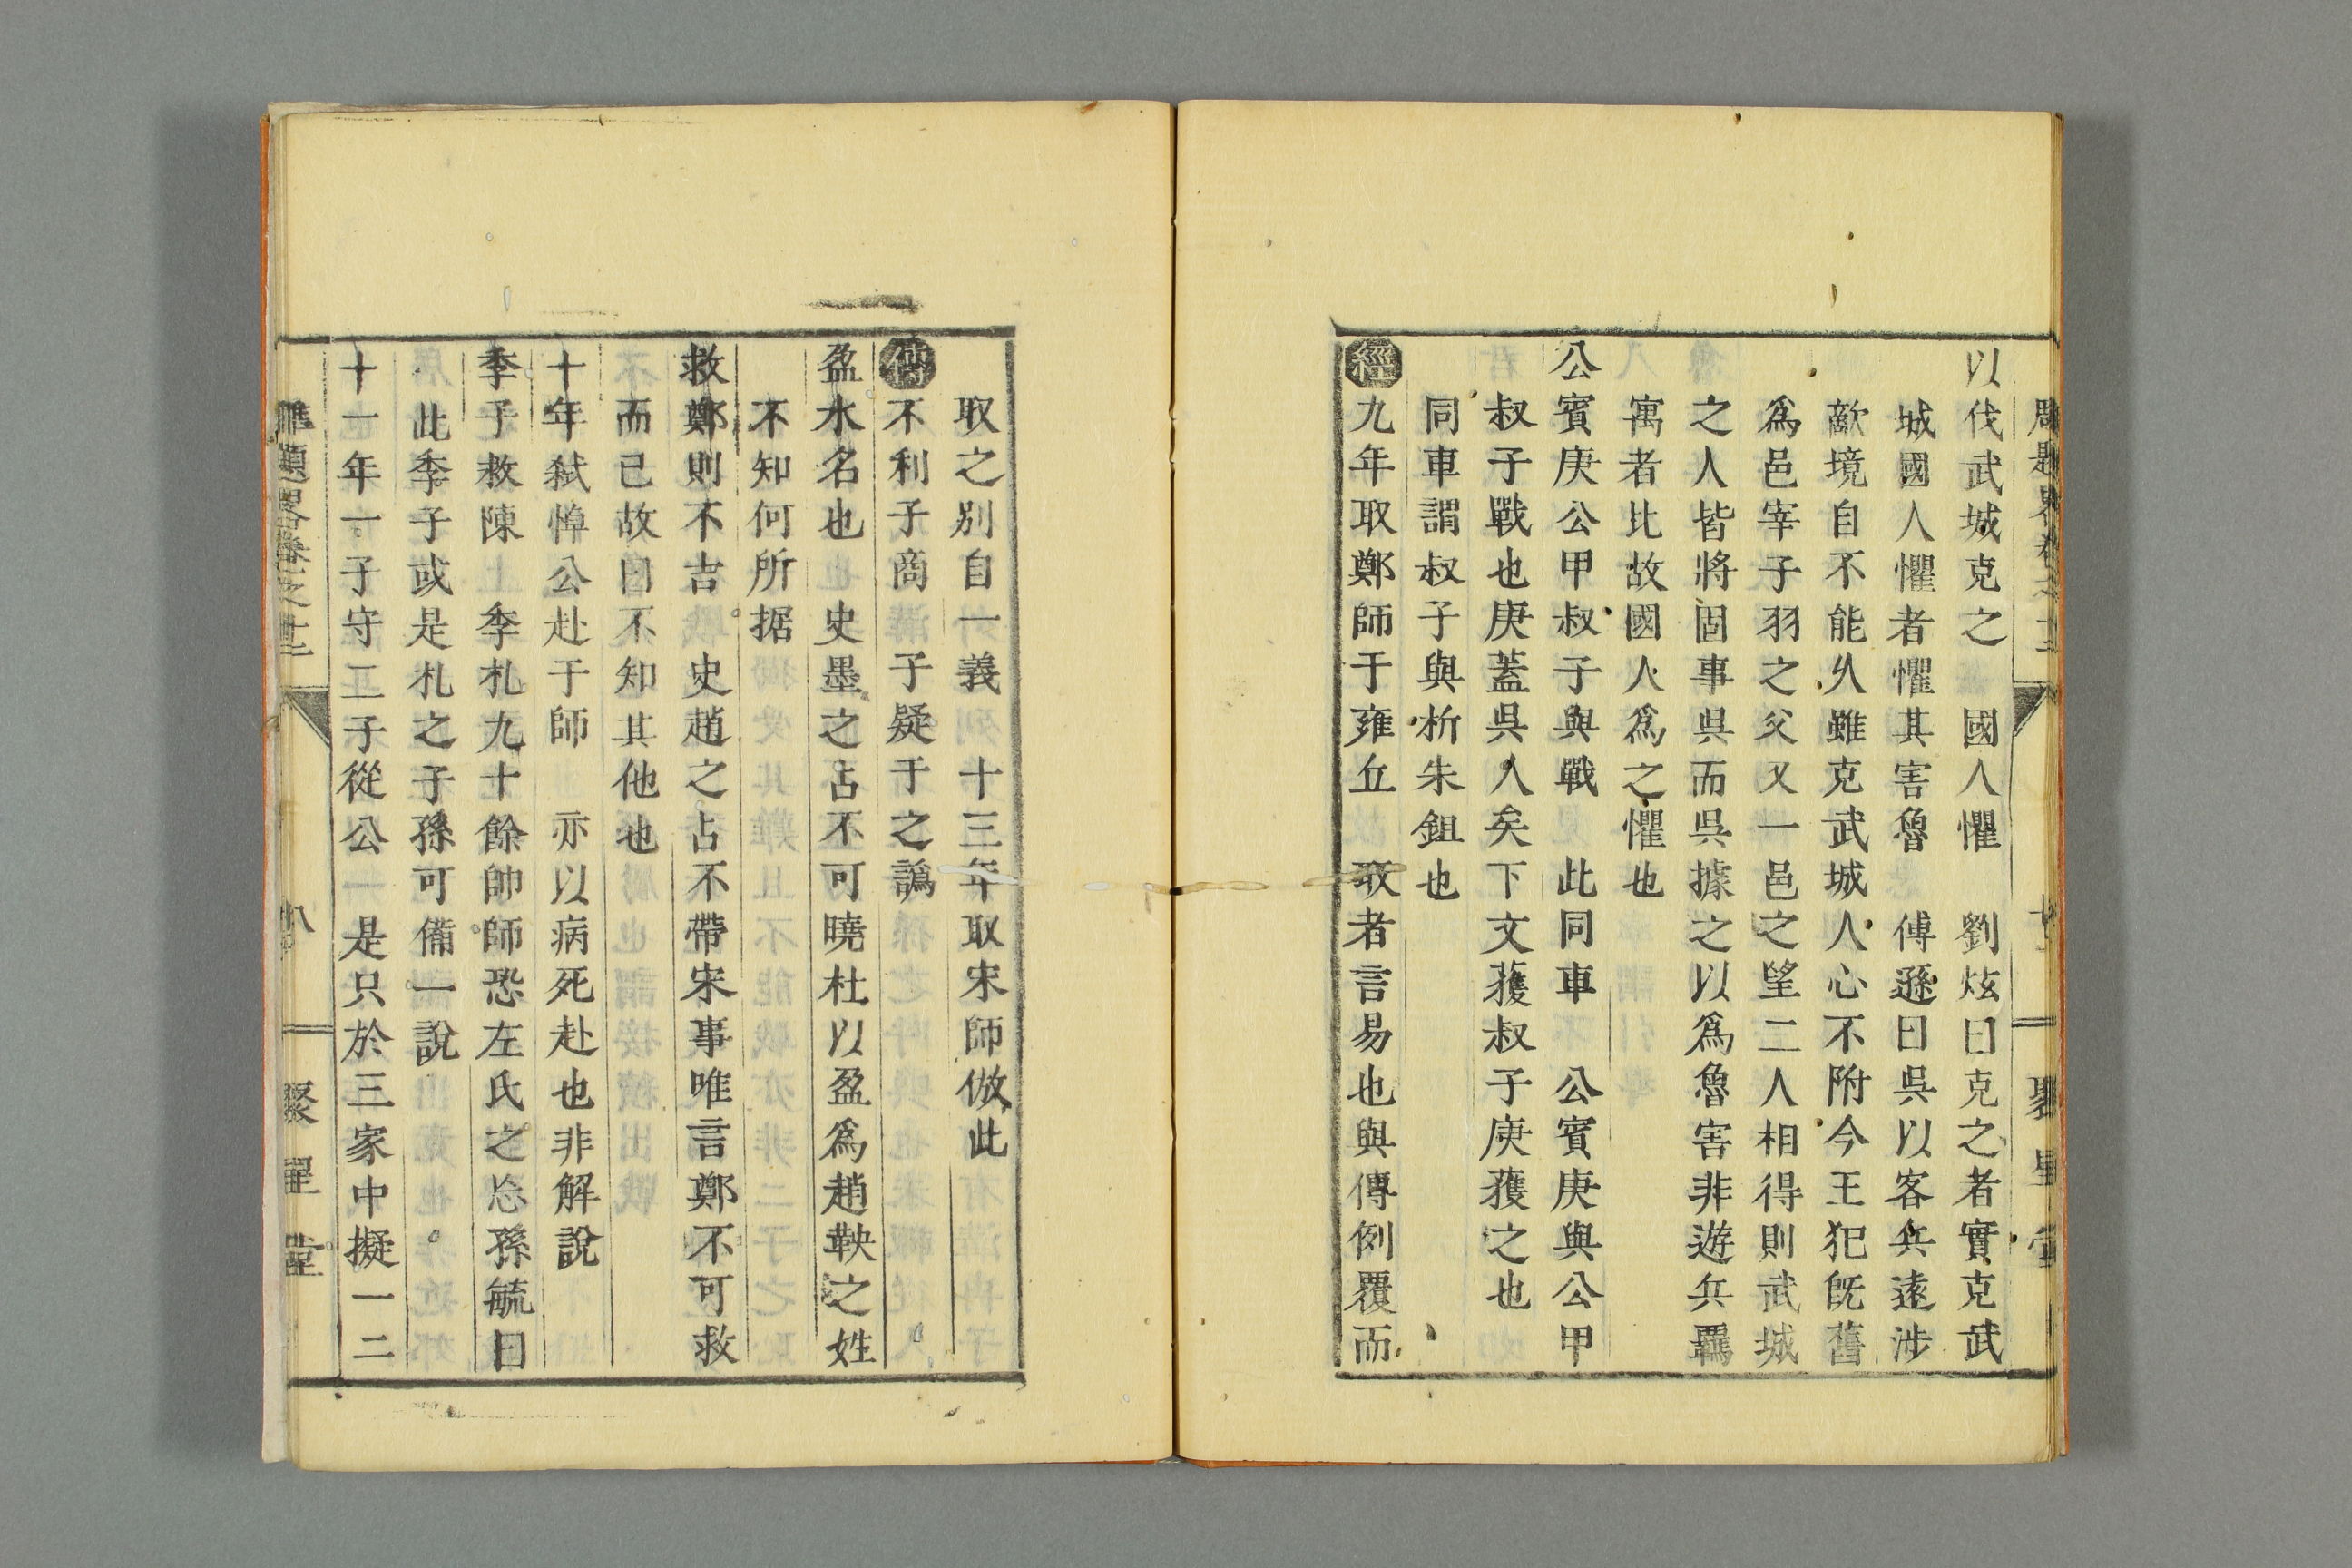 以伐武城克之　國人懼　劉炫曰克之者實克武
城國人懼者懼其害魯　傅遜曰吳以客兵遠涉
敵境自不能久雖克武城人心不附今王犯旣舊
爲邑宰子羽之父又一邑之望二人相得則武城
之人皆將固事吳而吳據之以爲魯害非遊兵羈
寓者比故國人爲之懼也
公賓庚公甲叔子與戰　此同車　公賓庚與公甲
叔子戰也庚蓋吳人矣下文蒦叔子庚蒦之也
同車謂叔子與析朱鉏也
經九年取鄭師于雍丘　取者言易也與傳例覆而
取之別自一義　十三年取宋師倣此
傳不利子商　子疑于之譌
盈水名也　史墨之占不可曉杜以盈爲趙鞅之姓
不知何所据
救鄭則不吉　史趙之占不帶宋事唯言鄭不可救
而已故因不知其他也
十年弑悼公赴于師　亦以病死赴也非解說
季子救陳　季札九十餘帥師恐左氏之忩孫毓曰
此季子或是札之子孫可備一說
十一年一子守二子從公　是只於三家中擬一二
雕題畧卷之十二　八　聚星堂